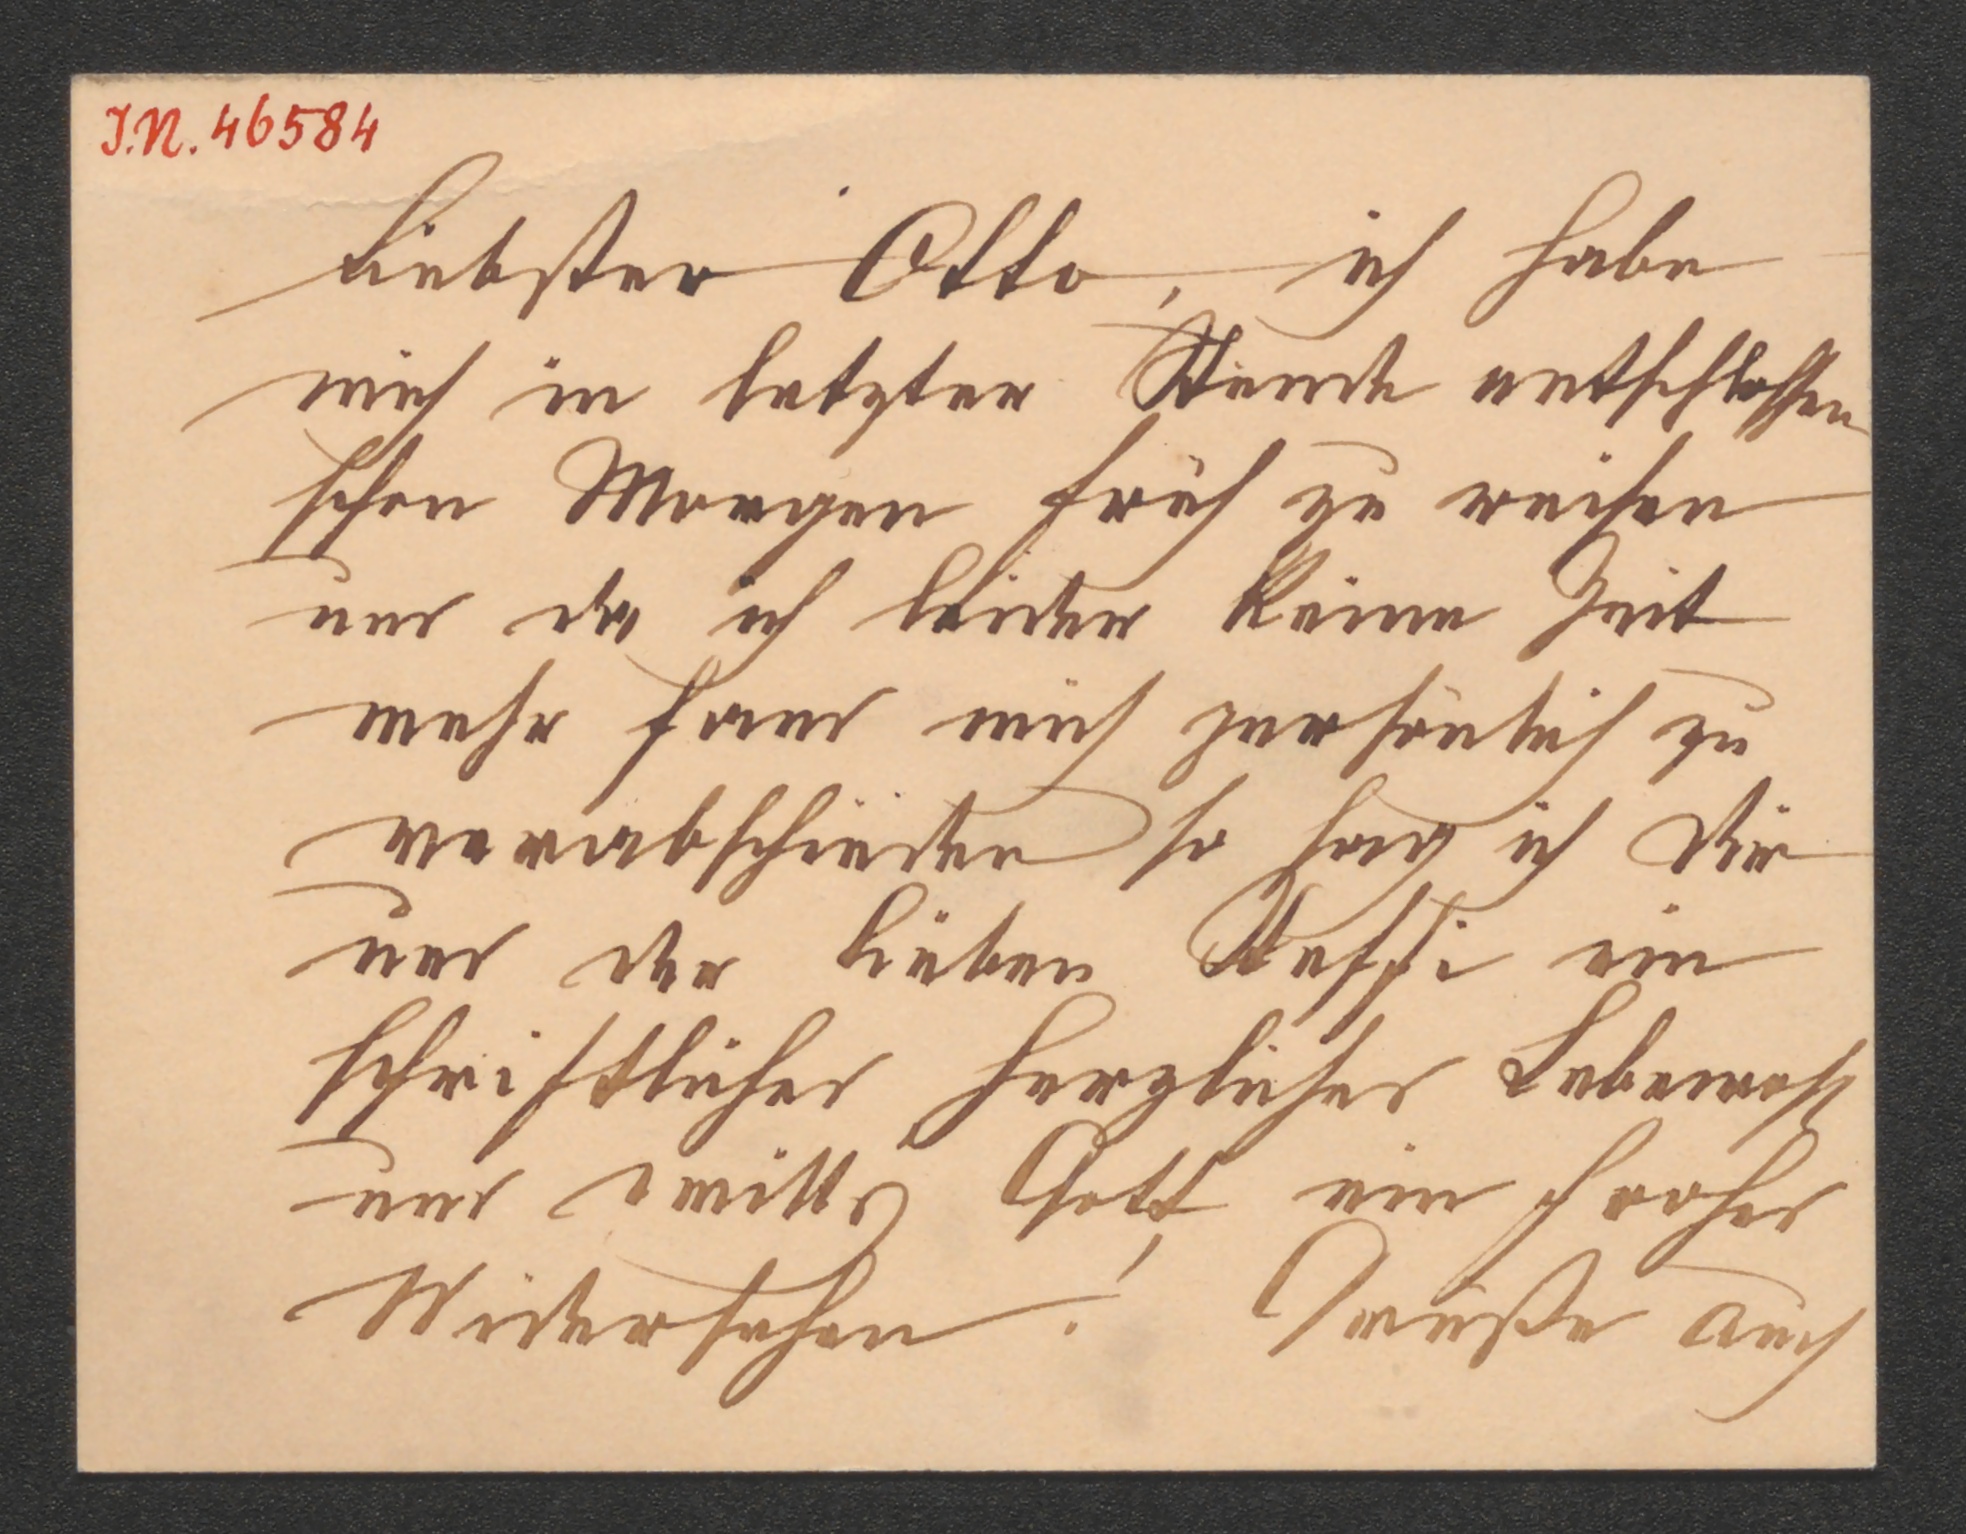 J.N. 46584
Liebster Otto, ich habe
mich in letzter Stunde entschlossen
schon Morgen früh zu reisen
und da ich leider keine Zeit
mehr fand mich persönlich zu
verabschieden so sag ich Dir
und der lieben Steffi ein
schriftliches herzliches Lebewohl
und will's Gott ein frohes
Widersehen! Grüße auch